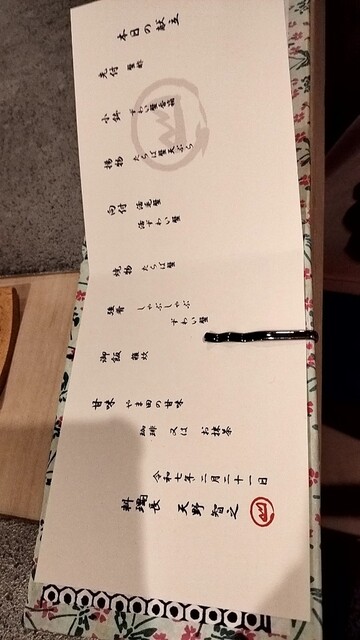 本日の献立
先付 蟹酢
小鉢 ずわい蟹
揚物 たらば蟹天ぷら
向付 活毛蟹
活ずわい蟹
焼物 たらば蟹
強肴 しゃぶしゃぶ
ずわい蟹
御飯 雑炊
甘味 やま田の甘味
珈琲 又は お抹茶
令和七年二月二十一日
料理長 天野智之